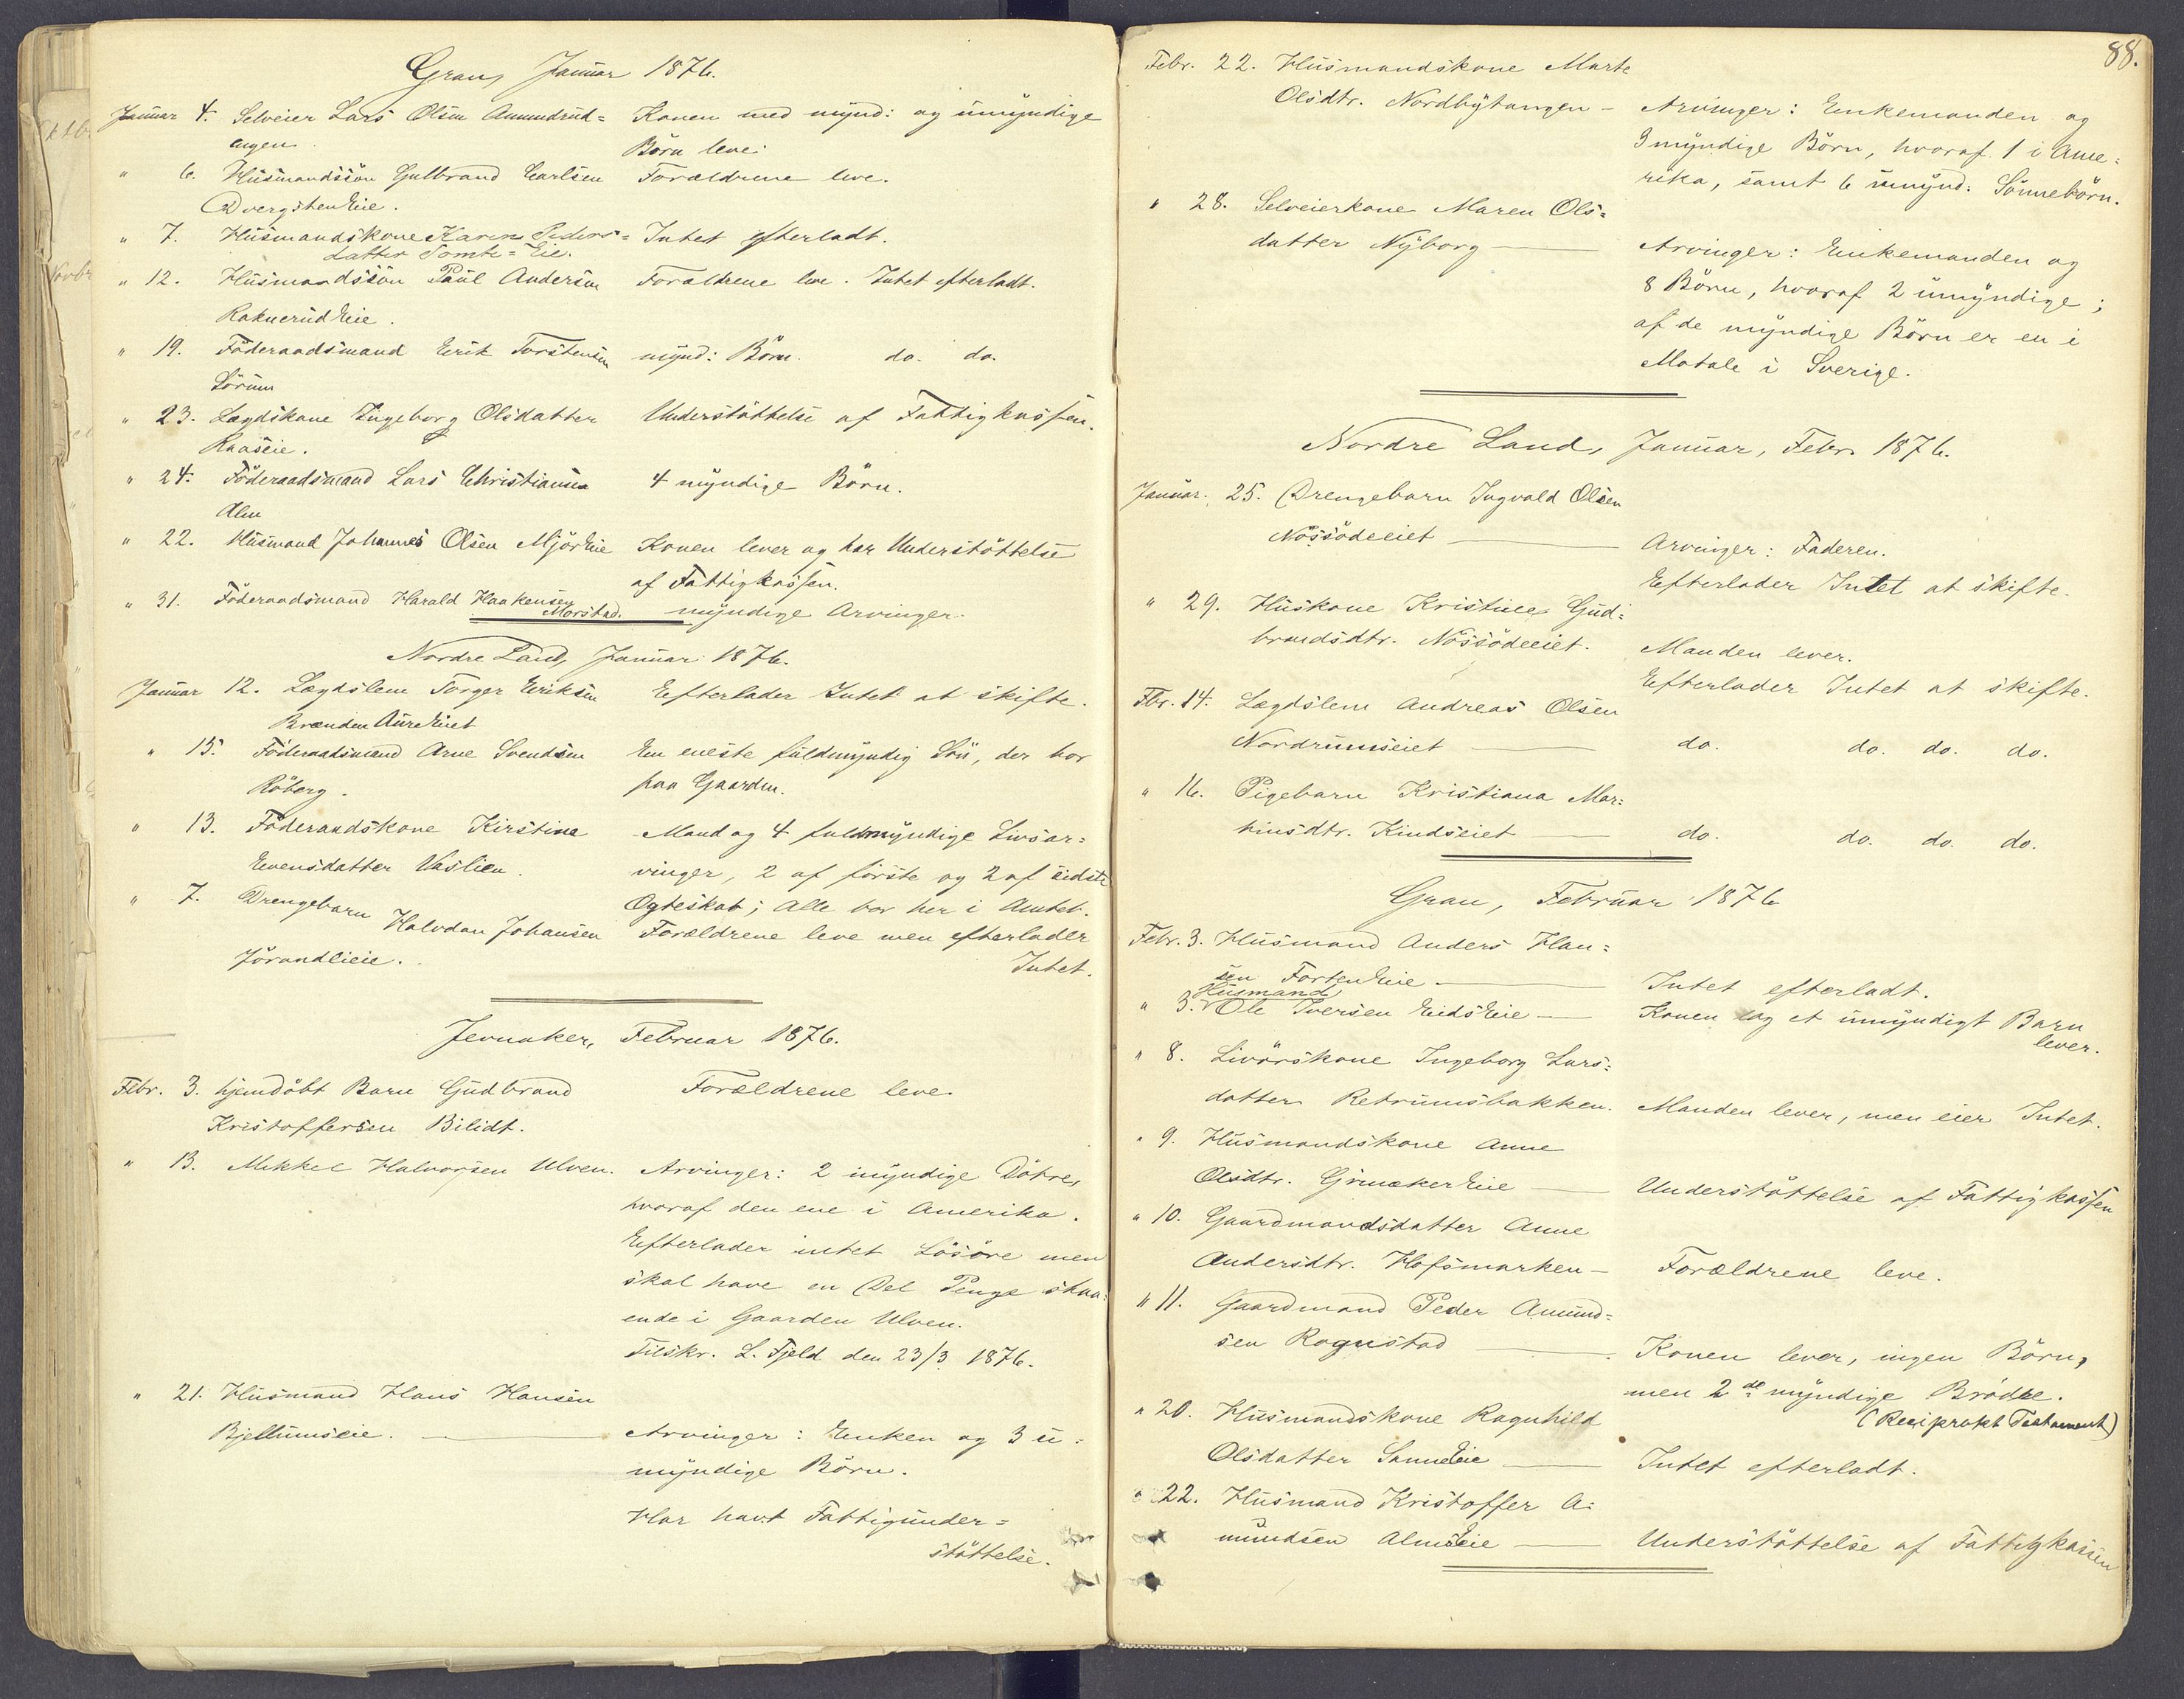 Gran, Januar 1876.
Januar 4. Selveier Lars Olsen Amundrud= Konen med mynd: og umyndige
engen. Börn leve.
" 6. Husmandssön Gulbrand Carlsen Forældrene leve.
DvergstenEie.
" 7. Husmandskone Karen Peders= Intet efterladt.
datter Tomte=Eie.
" 12. Husmandssön Paul Andersen Forældrene leve. Intet efterladt.
RaknerudEie.
" 19. Föderaadsmand Erik Torstensen mynd: Börn. do. do.
Sörum
" 23. Lægdskone Ingeborg Olsdatter Understöttelse af Fattigkassen.
Raaseie.
" 24. Föderaadsmand Lars Christiansen 4 myndige Börn.
Alm
" 22. Husmand Johannes Olsen MjörEie Konen lever og har Understöttelse
af Fattigkassen.
" 31. Föderaadsmand Harald Haakensen
Morstad. myndige Arvinger.
Nordre Land, Januar 1876.
Januar 12. Lægdslem Torger Eriksen Efterlader Intet at skifte.
Brænden AureEiet
" 15. Föderaadsmand Arne Svendsen En eneste fuldmyndig Sön, der bor
Röberg. paa Gaarden.
" 13. Föderaadskone Kirstine Mand og 4 fuldmyndige Livsar=
Evensdatter Vaslien. vinger, 2 af förste og 2 af sidste
Ægteskab; Alle bor her i Amtet.
" 7. Drengebarn Halvdan Johansen Forældrene leve men efterlader
Jörandlieie. Intet.
Jevnaker, Februar 1876.
Febr. 3. hjemdöbt Barn Gudbrand Forældrene leve.
Kristoffersen Bilidt.
" 13. Mikkel Halvorsen Ulven. Arvinger: 2 myndige Dötre,
hvoraf den ene i Amerika.
Efterlader intet Lösöre men
skal have en Del Penge staa=
ende i Gaarden Ulven.
Tilskr. L. Fjeld den 23/3 1876.
" 21. Husmand Hans Hansen
Bjellumseie. Arvinger: Enken og 3 u=
myndige Börn.
Har havt Fattigunder=
stöttelse.
88.
Febr. 22. Husmandskone Marte
Olsdtr. Nordbytangen – Arvinger: Enkemanden og
3 myndige Börn, hvoraf 1 i Ame=
rika, samt 6 umynd: Sönnebörn.
" 28. Selveierkone Maren Ols=
datter Nyborg — Arvinger: Enkemanden og
8 Börn, hvoraf 2 umyndige;
af de myndige Börn er en i
Motala i Sverige.
Nordre Land, Januar, Febr. 1876.
Januar. 25. Drengebarn Ingvald Olsen
Nössödeeiet — Arvinger: Faderen.
Efterlader Intet at skifte.
" 29. Huskone Kristine Gud=
brandsdtr. Nössödeeiet. Manden lever.
Efterlader Intet at skifte.
Fbr. 14. Lægdslem Andreas Olsen
Nordrumseiet — do. do. do. do.
" 16. Pigebarn Kristiana Mar=
tinsdtr. Kindseiet — do. do. do. do.
Gran, Februar 1876
Febr. 3. Husmand Anders Han=
sen FortenEie. — Intet efterladt.
" 3. Husmand Ole Iversen EidsEie — Konen og et umyndigt Barn
lever.
" 8. Livörskone Ingeborg Lars=
datter Retrumsbakken. Manden lever, men eier Intet.
" 9. Husmandskone Anne
Olsdtr. GrinakerEie — Understöttelse af Fattigkassen
" 10. Gaardmandsdatter Anne
Andersdtr. Hofsmarken – Forældrene leve.
" 11. Gaardmand Peder Amund=
sen Rognstad — Konen lever, ingen Börn,
men 2de myndige Brödre.
(Reciprokt Testament)
" 20. Husmandskone Ragnhild
Olsdatter SanneEie — Intet efterladt.
" 22. Husmand Kristoffer A=
mundsen AlmsEie — Understöttelse af Fattigkassen